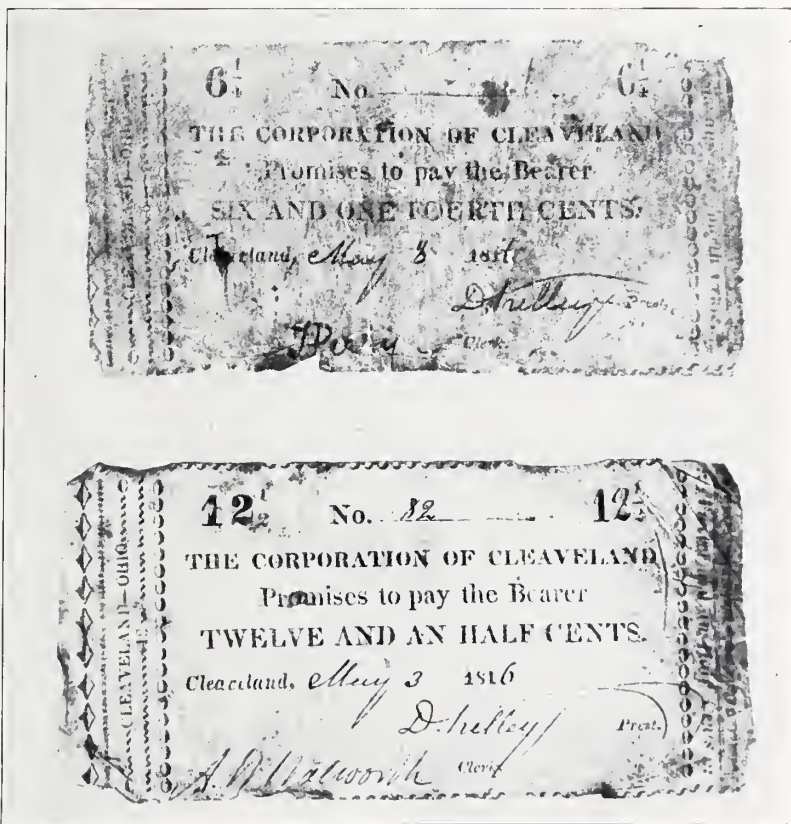 6¼ No. 6¼
THE CORPORATION OF CLEAVELAND
Promises to pay the Bearer
SIX AND ONE FOURTH CENTS.
Cleaveland, May 8 181
D. Kelley
Clerk.
12½ No. 82 12½
THE CORPORATION OF CLEAVELAND
Promises to pay the Bearer
TWELVE AND AN HALF CENTS.
Cleaveland, May 3 1816
D. Kelley Prest.
A. W. Walworth Clerk
CLEAVELAND—OHIO